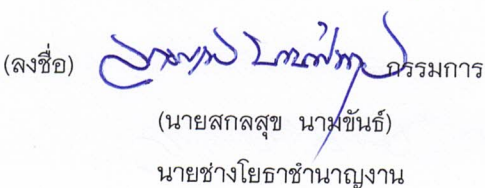 (ลงชื่อ) กรรมการ
(นายสกลสุข นามขันธ์)
นายช่างโยธาชำนาญงาน